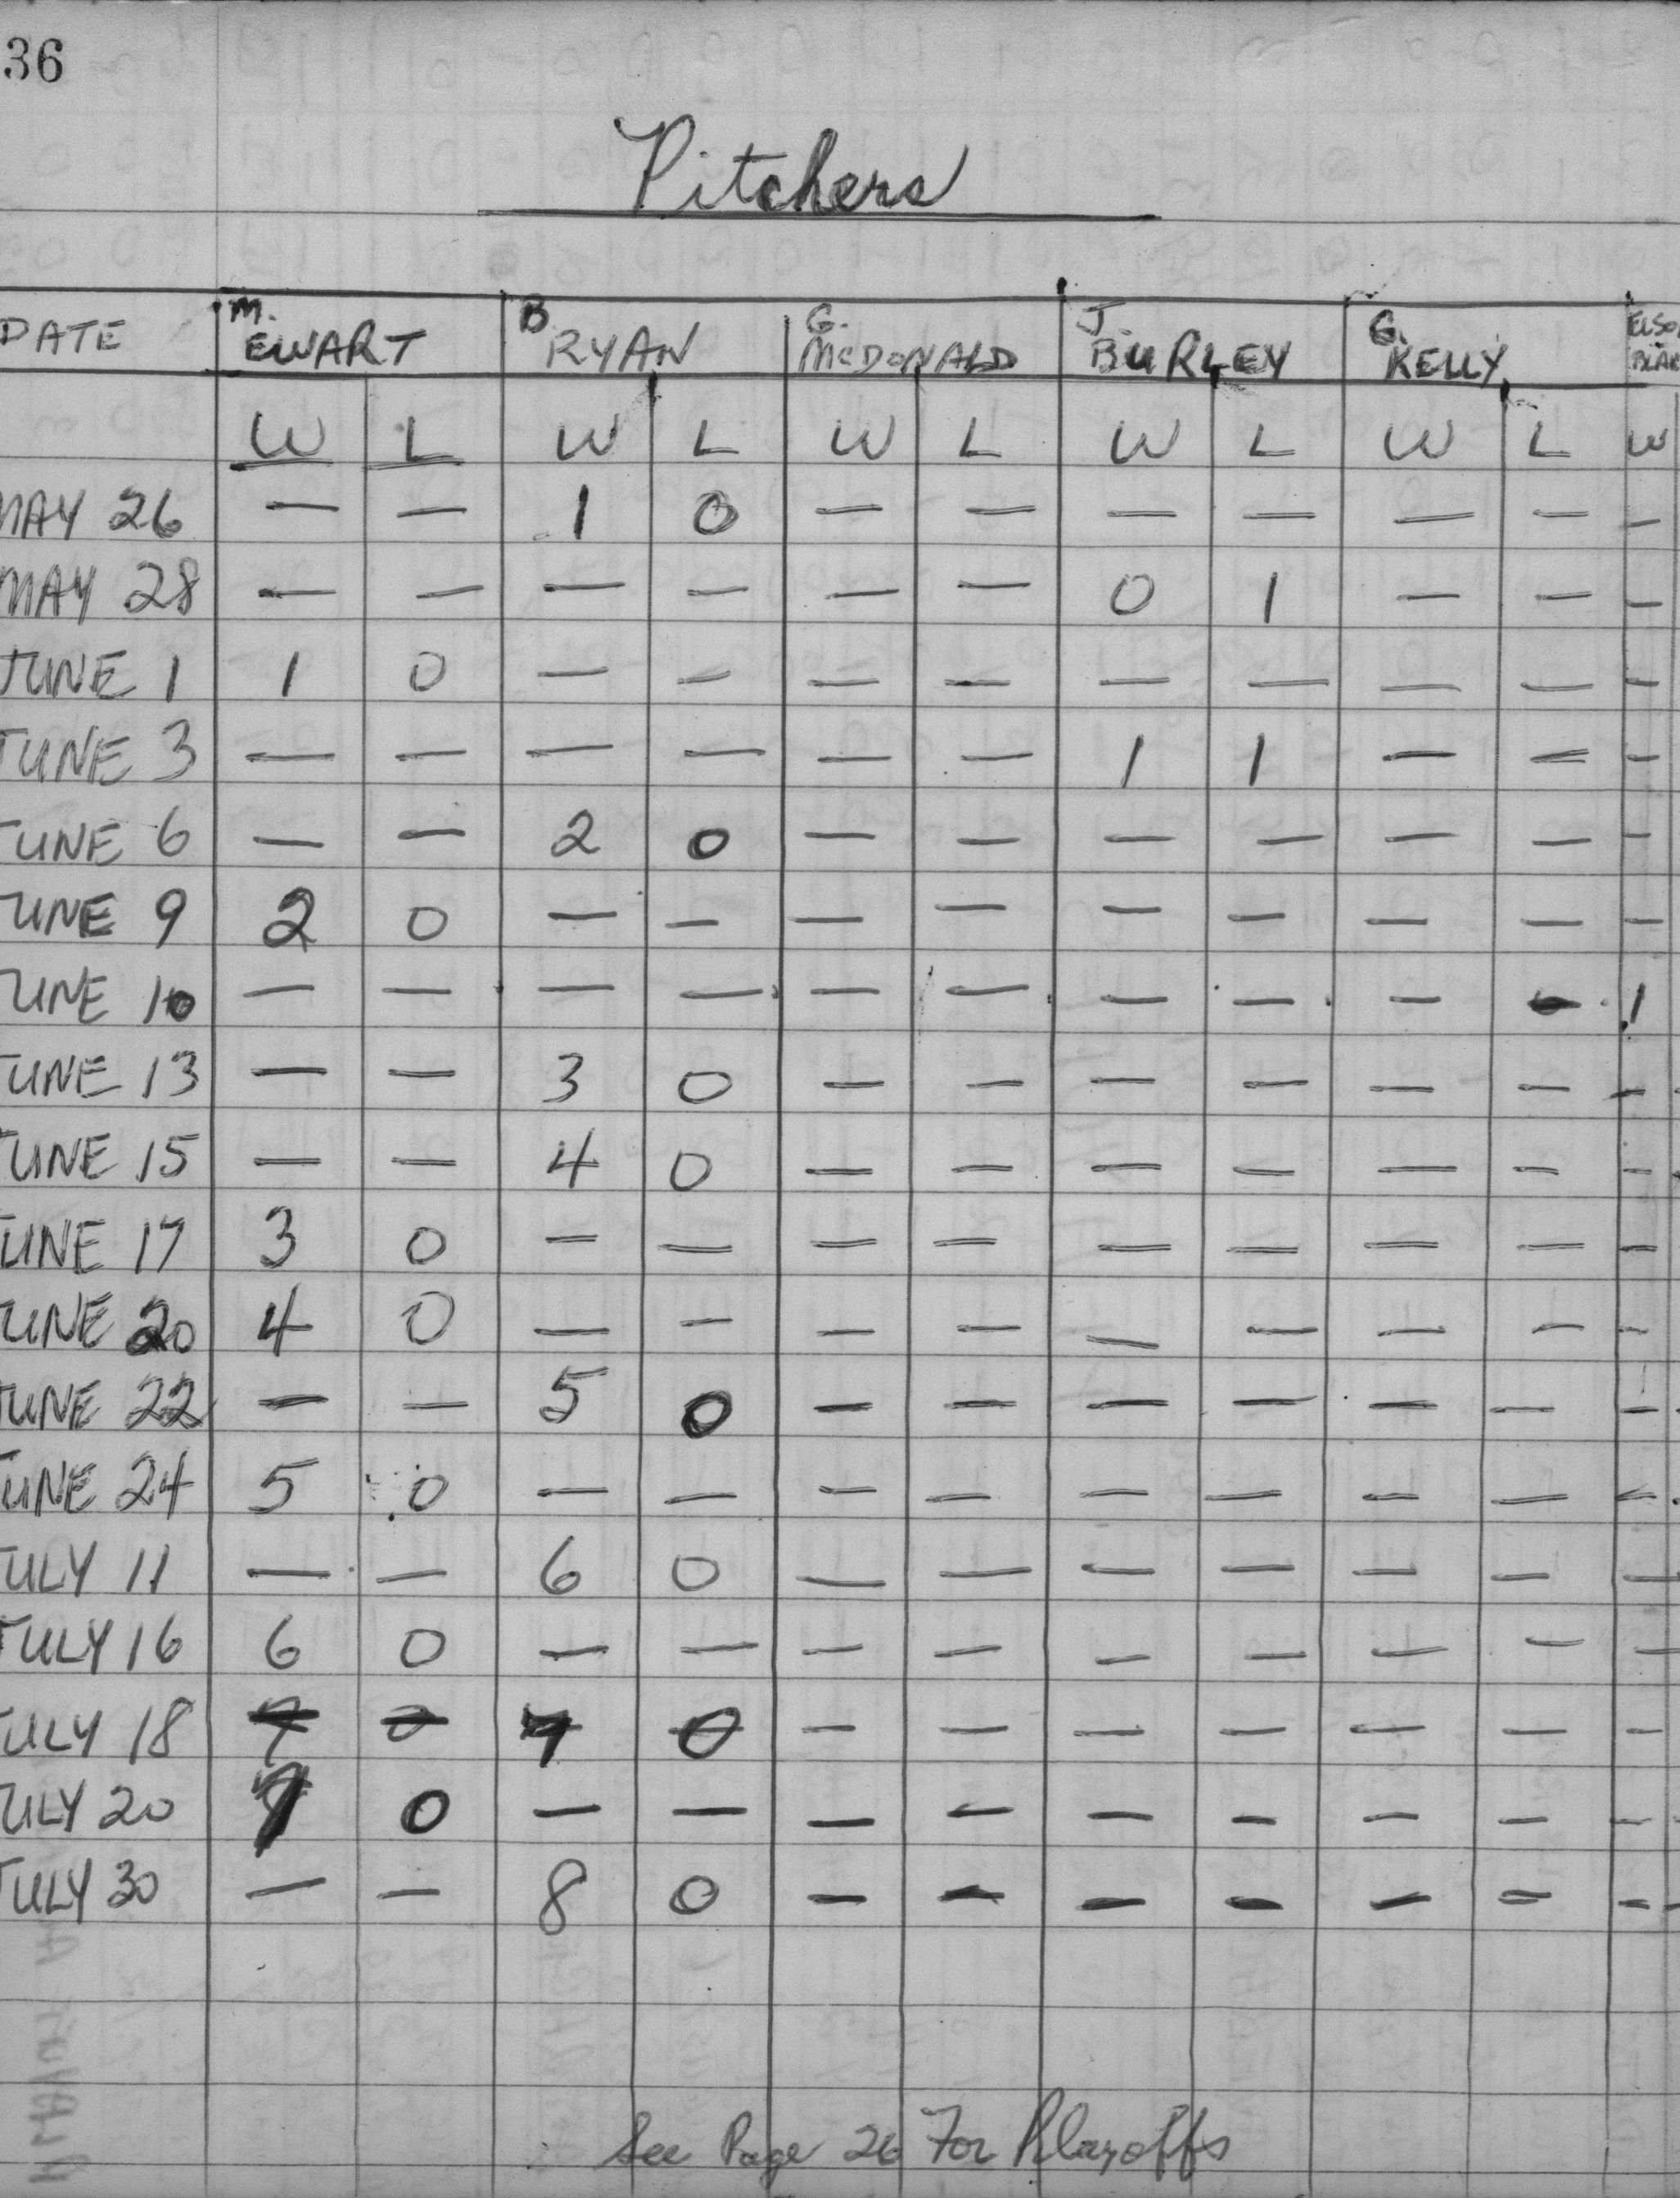 36
Pitchers
DATE M. EWART B. RYAN G. McDONALD J. BURLEY G. KELLY
W L W L W L W L W L W
MAY 26 — — 1 0 — — — — — — —
MAY 28 — — — — — — 0 1 — — —
JUNE 1 1 0 — — — — — — — — —
JUNE 3 — — — — — — 1 1 — — —
JUNE 6 — — 2 0 — — — — — — —
JUNE 9 2 0 — — — — — — — — —
JUNE 10 — — — — — — — — — — 1
JUNE 13 — — 3 0 — — — — — — —
JUNE 15 — — 4 0 — — — — — — —
JUNE 17 3 0 — — — — — — — — —
JUNE 20 4 0 — — — — — — — — —
JUNE 22 — — 5 0 — — — — — — —
JUNE 24 5 0 — — — — — — — — —
JULY 11 — — 6 0 — — — — — — —
JULY 16 6 0 — — — — — — — — —
JULY 18 7 0 7 0 — — — — — — —
JULY 20 7 0 — — — — — — — — —
JULY 30 — — 8 0 — — — — — — —
See Page 26 For Playoffs